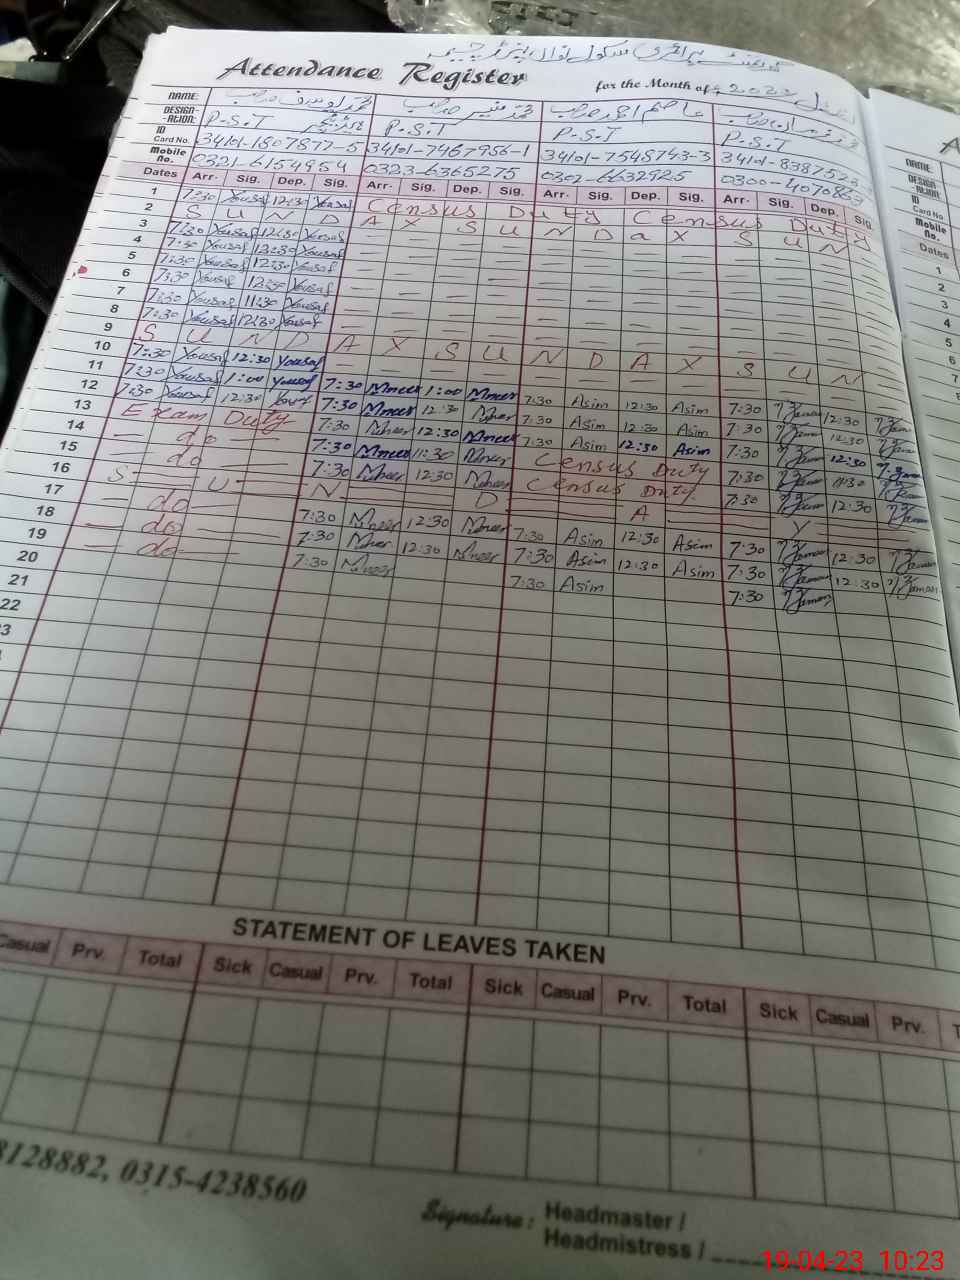 Attendance Register for the Month of
NAME:
DESIGN-
-ATION: P.S.T P.S.T P.S.T P.S.T
ID
Card No. 34101-1807877-5 34101-7467956-1 34101-7548743-3 34101-8387523-
Mobile
No. 0321-6154954 0323-6365275 0302-6632925 0300-4070863
Dates Arr. Sig. Dep. Sig. Arr. Sig. Dep. Sig. Arr. Sig. Dep. Sig. Arr. Sig. Dep. Sig.
1 7:30 Yousaf 12:30 Yousaf Census Duty Census Duty
2 S U N D A X S U N D a X S U N
3 7:30 Yousaf 12:30 Yousaf
4 7:30 Yousaf 12:30 Yousaf
5 7:30 Yousaf 12:30 Yousaf
6 7:30 Yousaf 12:30 Yousaf
7 7:30 Yousaf 11:30 Yousaf
8 7:30 Yousaf 12:30 Yousaf
9 S U N D A X S U N D A X S U N
10 7:30 Yousaf 12:30 Yousaf
11 7:30 Yousaf 1:00 Yousaf 7:30 Mneer 1:00 Mneer 7:30 Asim 12:30 Asim 7:30 Zaman 12:30 Zaman
12 7:30 Yousaf 12:30 Yousaf 7:30 Mneer 12:30 Mneer 7:30 Asim 12:30 Asim 7:30 Zaman 12:30 Zaman
13 Exam Duty 7:30 Mneer 12:30 Mneer 7:30 Asim 12:30 Asim 7:30 Zaman 12:30 Zaman
14 — do — 7:30 Mneer 11:30 Mneer Census Duty 7:30 Zaman 11:30 Zaman
15 — do — 7:30 Mneer 12:30 Mneer Census Duty 7:30 Zaman 12:30 Zaman
16 S U N D A Y
17 — do — 7:30 Mneer 12:30 Mneer 7:30 Asim 12:30 Asim 7:30 Zaman 12:30 Zaman
18 — do — 7:30 Mneer 12:30 Mneer 7:30 Asim 12:30 Asim 7:30 Zaman 12:30 Zaman
19 — do — 7:30 Mneer 7:30 Asim 7:30 Zaman
20
21
22
STATEMENT OF LEAVES TAKEN
Casual Prv. Total Sick Casual Prv. Total Sick Casual Prv. Total Sick Casual Prv.
8128882, 0315-4238560
Signature: Headmaster /
Headmistress /
NAME:
DESIGN-
-ATION:
ID
Card No.
Mobile
No.
Dates
1
2
3
4
5
6
7
19-04-23 10:23